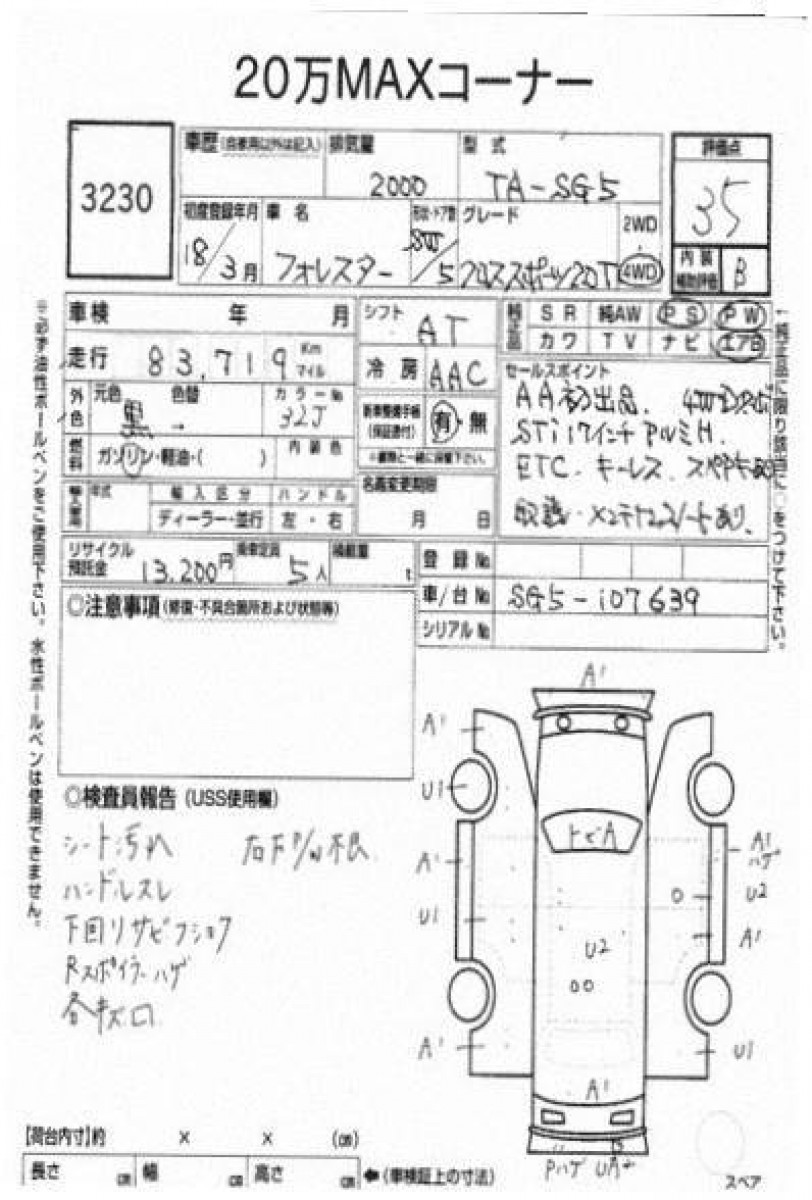 20万MAXコーナー
3230
車歴(自家用以外は記入)
排気量
2000
型式
TA-SG5
評価点
35
初度登録年月
18/3月
車名
フォレスター
形状・ドア数
SW/5
グレード
クロススポーツ20T
2WD
4WD
内装
補助評価
B
車検 年 月
シフト
AT
純正品
SR 純AW PS PW
カワ TV ナビ エアB
走行 83,719 Km マイル
冷房 AAC
セールスポイント
AA初出品. 4WD
STi 17インチアルミH.
ETC. キーレス.
取説・メンテノートあり.
外色
元色 色替
黒 →
カラーNo
32J
新車整備手帳
(保証書付)
有・無
※書類と一緒に保管下さい
燃料
ガソリン・軽油・( )
内装色
輸入車用
年式
輸入区分
ハンドル
ディーラー・並行
左・右
名義変更期限
月 日
リサイクル
預託金
13,200円
乗車定員
5人
積載量
t
登録No
車/台No
SG5-107639
シリアルNo
◎注意事項(修復・不具合箇所および状態等)
※必ず油性ボールペンをご使用下さい。水性ボールペンは使用できません。
↑純正品に限り該当に○をつけて下さい。
◎検査員報告(USS使用欄)
シート汚れ 右前P/W不良.
ハンドルスレ
下回リサビフショク
Rスポイラーハゲ
各キズ凹
A1
A1
U1
A1
U1
A1
トビA
A1
ハゲ
U2
A1
U2
U1
A1
Pハゲ UA+
スペア
【荷台内寸】約 × × (cm)
長さ cm 幅 cm 高さ cm
←(車検証上の寸法)